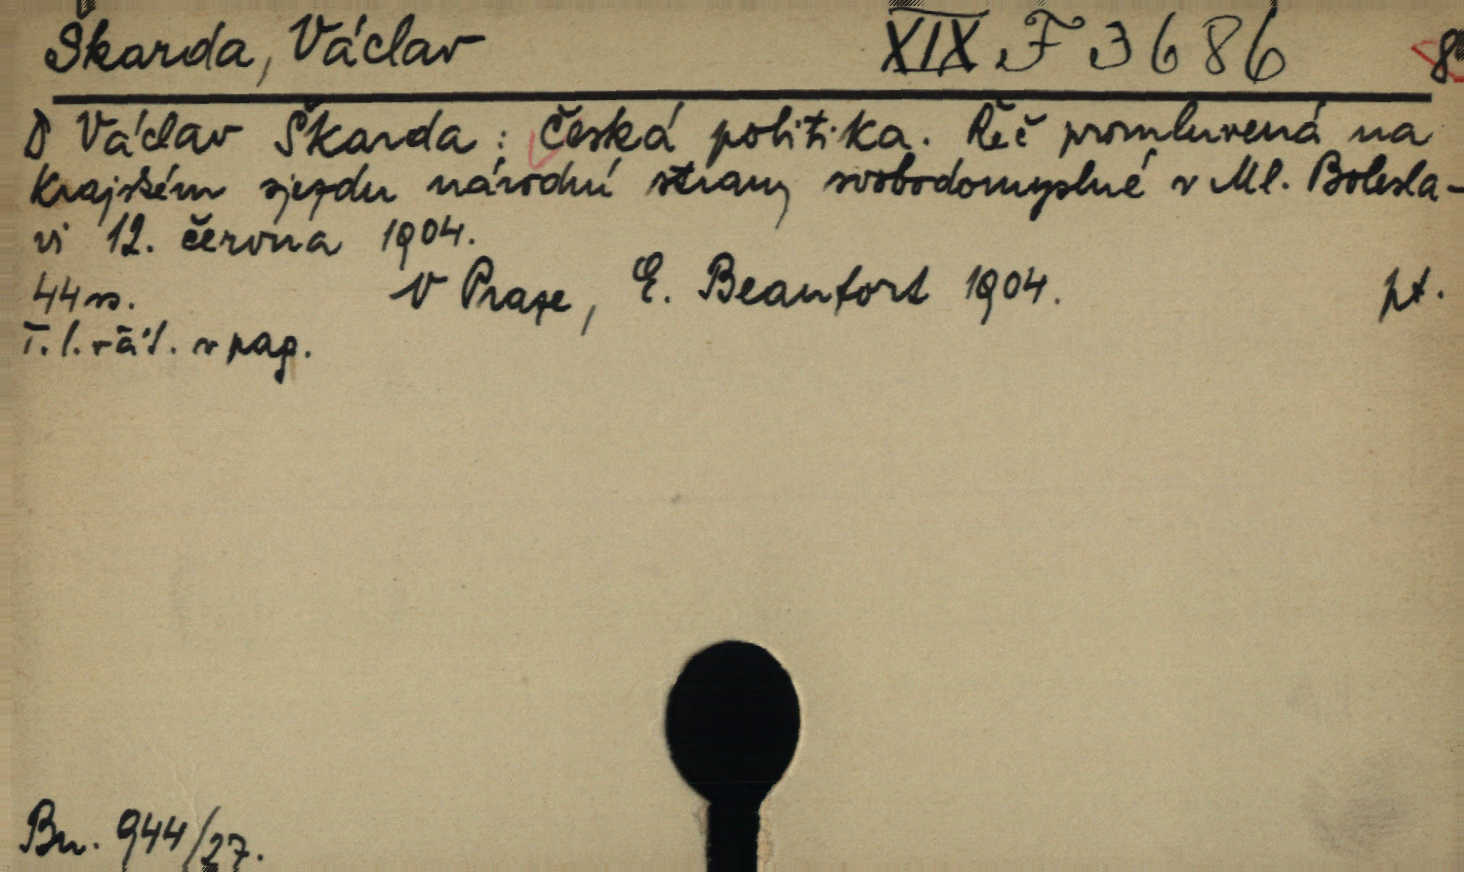 Škarda, Václav XIX F 3686 8°
D Václav Škarda: Česká politika. Řeč promluvená na
krajském sjezdu národní strany svobodomyslné v Ml. Bolesla-
vi 12. června 1904.
44 ss. V Praze, E. Beaufort 1904. př.
T. l. v pag.
Bn. 944/27.